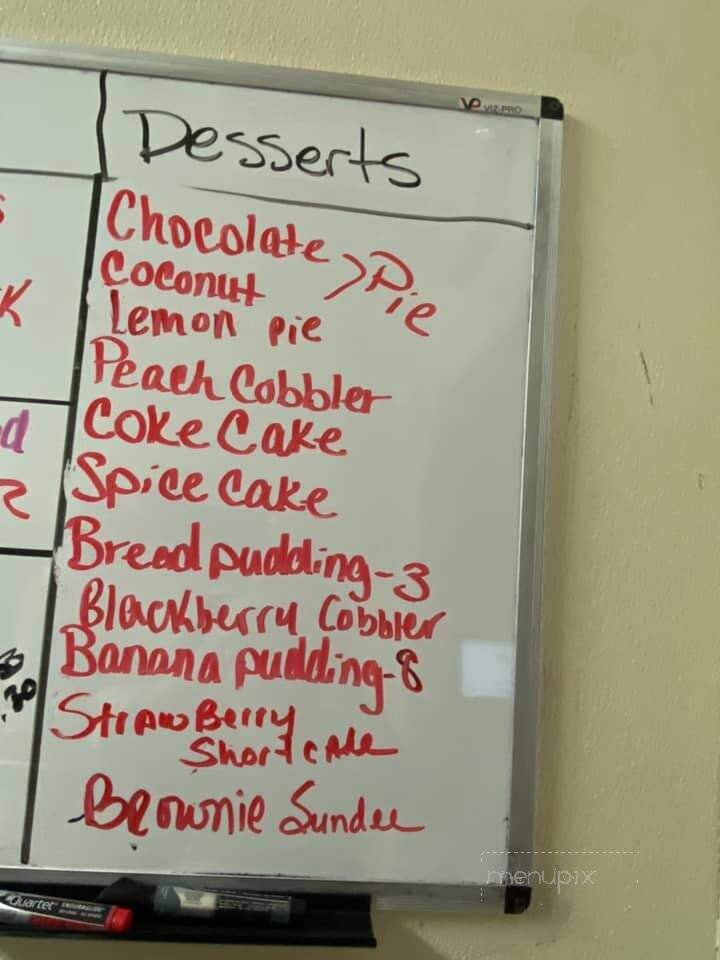 VIZ-PRO
Desserts
Chocolate
Coconut >Pie
Lemon pie
Peach Cobbler
Coke Cake
Spice Cake
Bread pudding-3
Blackberry Cobbler
Banana pudding-8
StrawBerry
Shortcake
Brownie Sundee
menupix
Quartet